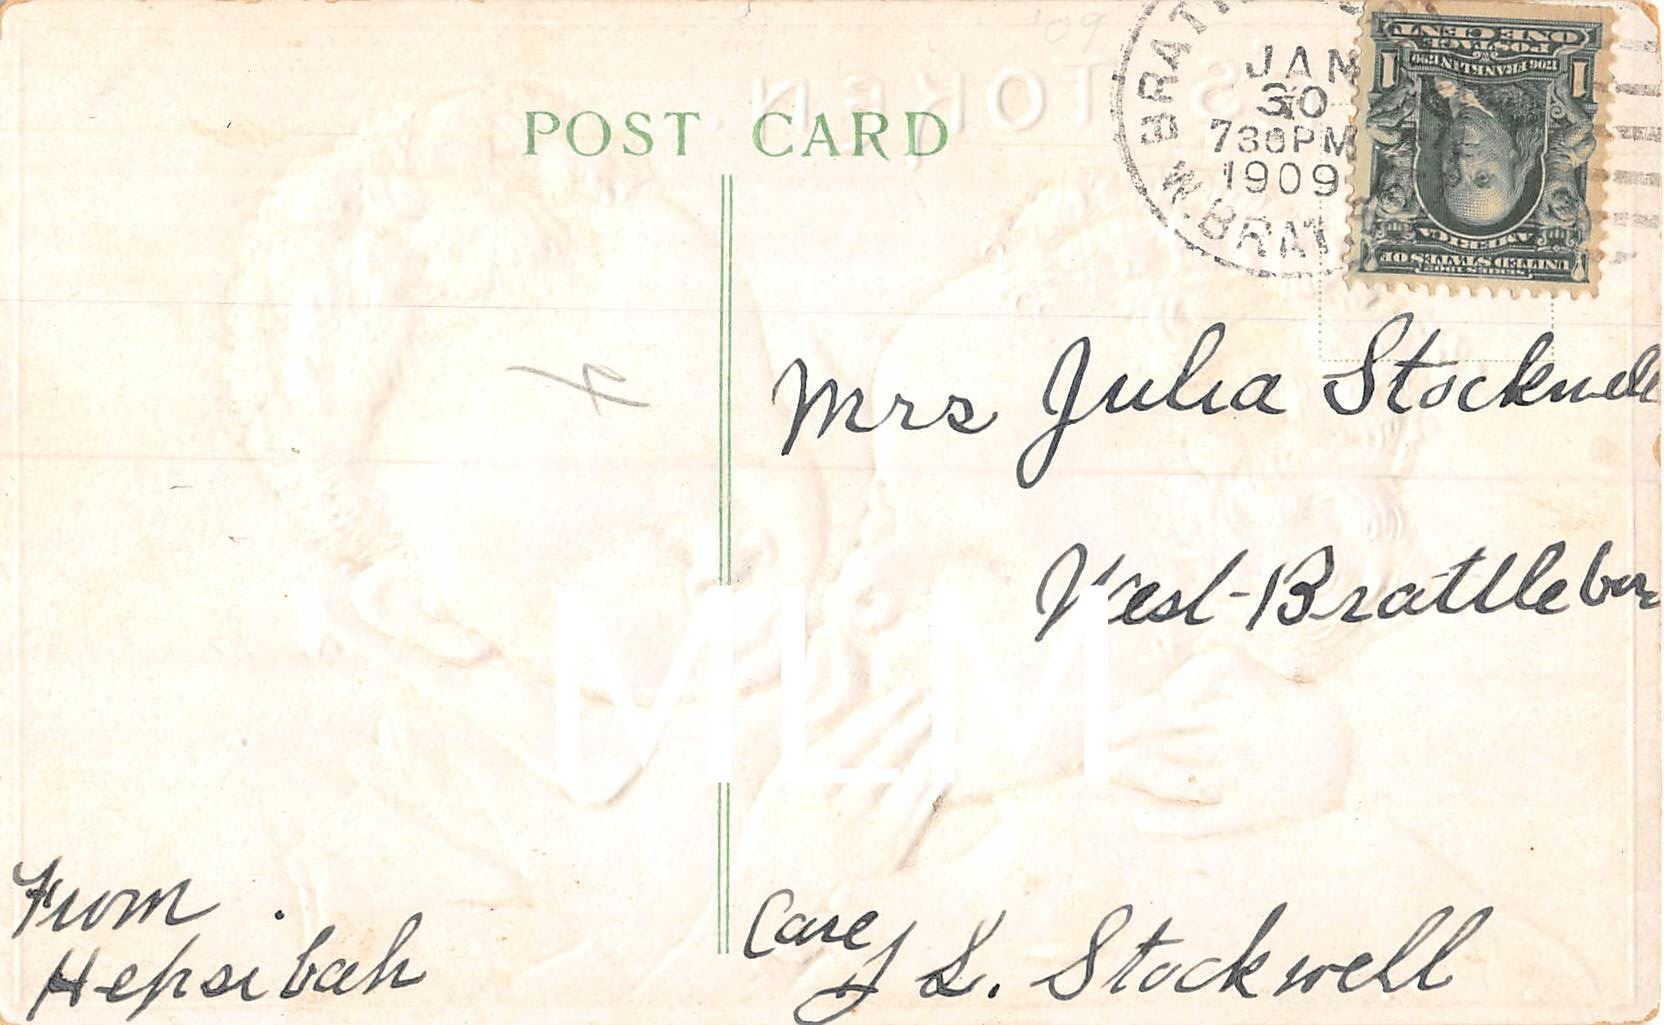 '09
POST CARD
W. BRATT
JAN
30
730PM
1909
W. BRAT
ONE CENT
POSTAGE
1706 FRANKLIN 1790
1 1
AMERICA
UNITED STATES OF
SERIES 1902
TOKEN
Mrs Julia Stockwell
West-Brattleboro
MLM
From
Hepsibah
Care
J L. Stockwell